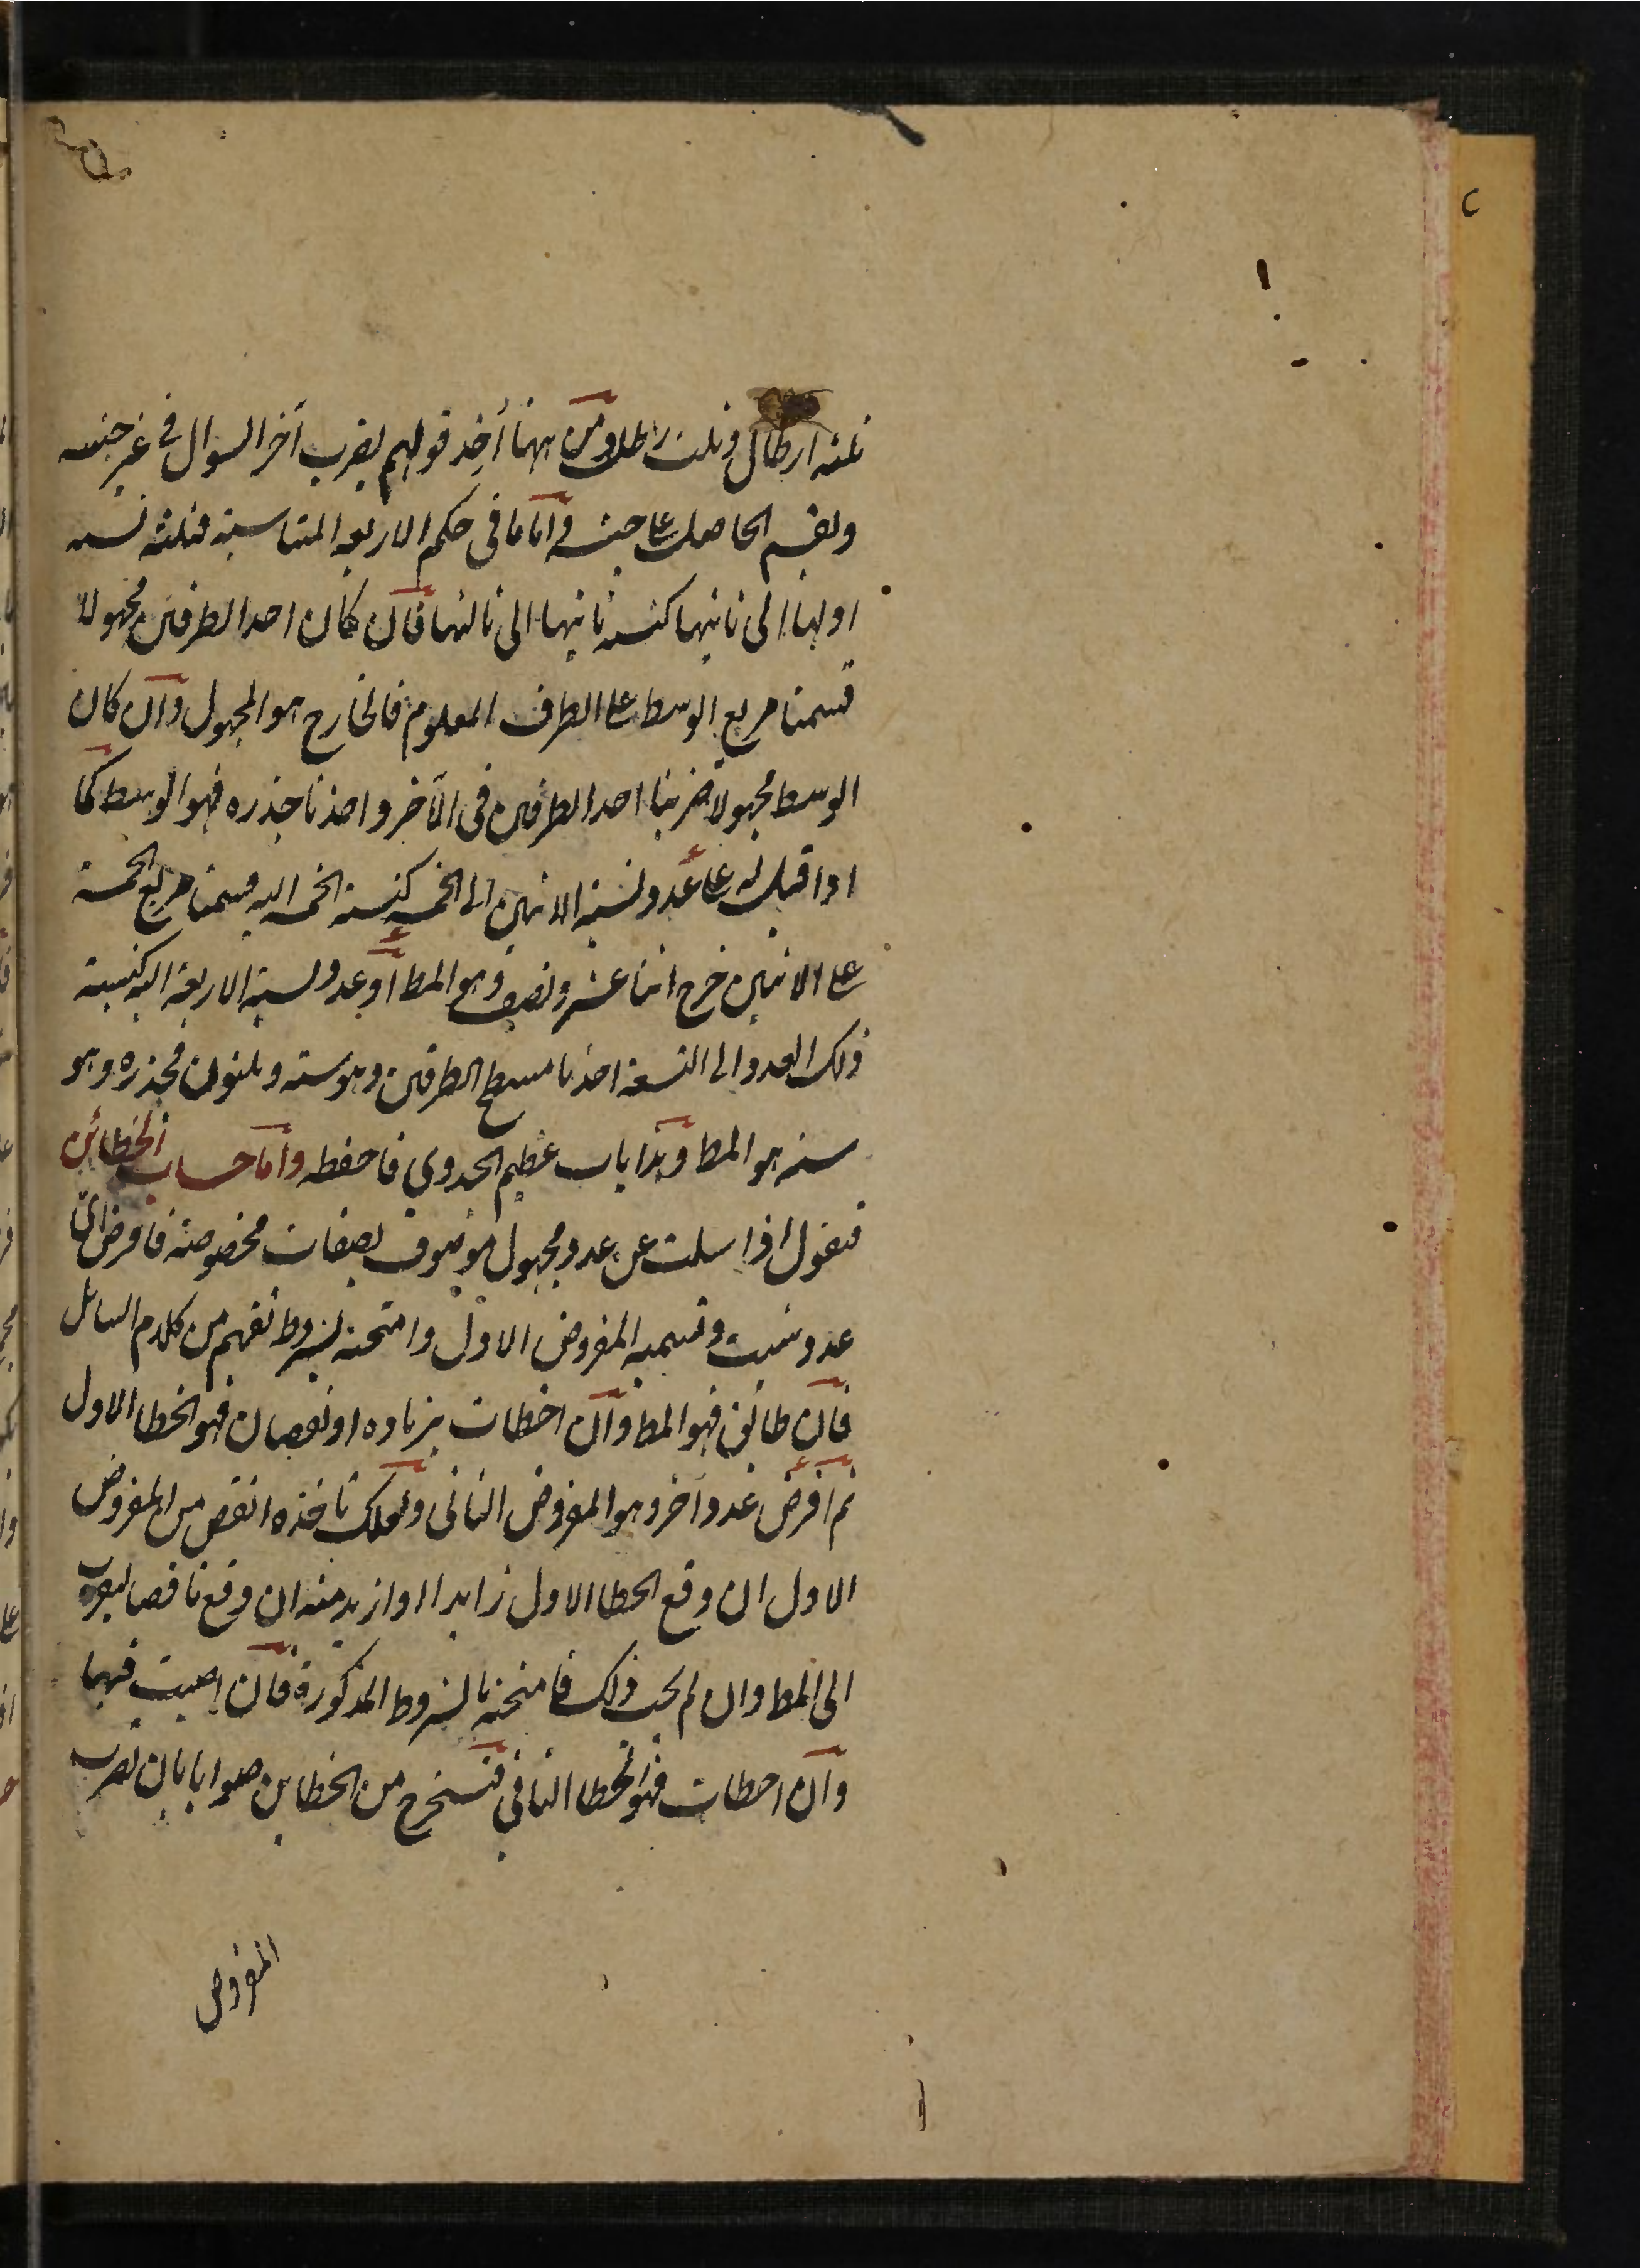 ثلثه ارطال وثلث رطل ومن ههنا أخذ قولهم يضرب آخر السوال في غير جنسه
ويقسم الحاصل على جنسه واما ما في حكم الاربعه المتناسبة فثلثه نسبه
اولها الى ثانيها كنسبه ثانيها الى ثالثها فان كان احد الطرفين مجهولا
قسمنا مربع الوسط على الطرف المعلوم فالخارج هو المجهول وان كان
الوسط مجهولا ضربنا احد الطرفين فى الآخر واخذنا جذره فهو الوسط كما
اذا قيل لك اى عدد نسبة الاثنين الى الخمسه كنسبة الخمسه اليه قسمنا مربع الخمسة
على الاثنين خرج اثنا عشر ونصف وهو المط او اى عدد نسبة الاربعة اليه كنسبة
ذلك العدد الى التسعة اخذنا مسطح الطرفين وهو سته وثلثون فجذره وهو
سته هو المط وهذا باب عظيم الجدوى فاحفظه واما حساب الخطائن
فنقول اذا سئلت عن عدد مجهول موصوف بصفات مخصوصة فافرض اىّ
عدد شئت وتسميه المفروض الاول وامتحنه بشروط تفهم من كلام السائل
فان طابق فهو المط وان اخطات بزيادة او نقصان فهو الخطا الاول
ثم افرض عددا آخر وهو المفروض الثانى ولعلك تاخذه انقص من المفروض
الاول ان وقع الخطا الاول زايدا او ازيد منه ان وقع ناقصا ليقرب
الى المط وان لم يجب ذلك فامتحنه بالشروط المذكورة فان اصبت فبها
وان اخطات فهو الخطا الثاني فتستخرج من الخطاين صوابا بان تضرب
المفروض